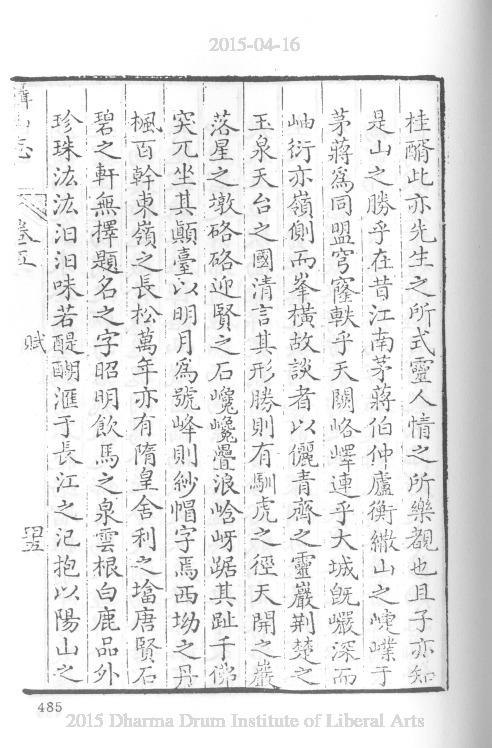 2015-04-16
桂醑此亦先生之所式靈人情之所樂觀也且子亦知
是山之勝乎在昔江南茅蔣伯仲廬衡繖山之崨嶪于
茅蔣為同盟穹窿軼乎天闕峈嶧連乎大城既巖深而
岫衍亦嶺側而峯橫故談者以儷青齊之靈巖荆楚之
玉泉天台之國清言其形勝則有馴虎之徑天開之巖
落星之墩硌硌迎賢之石巉巉疊浪峆岈踞其趾千佛
突兀坐其顛臺以明月為號峰則紗帽字焉西坳之丹
楓百幹東嶺之長松萬年亦有隋皇舍利之墖唐賢石
碧之軒無擇題名之字昭明飲馬之泉雲根白鹿品外
珍珠汯汯汩汩味若醍醐滙于長江之汜抱以陽山之
攝山志
卷五
賦
485
2015 Dharma Drum Institute of Liberal Arts